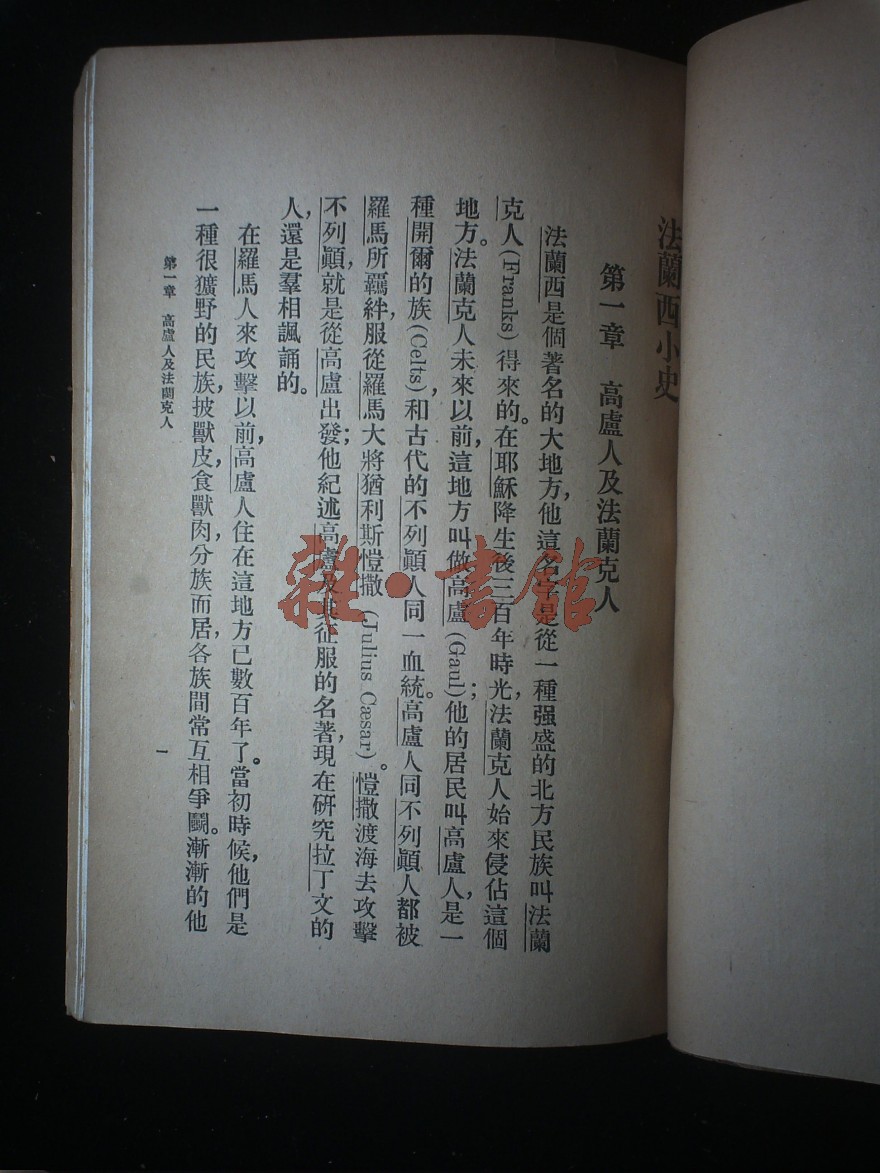 法蘭西小史
第一章 高盧人及法蘭克人
法蘭西是個著名的大地方,他這名字是從一種强盛的北方民族叫法蘭
克人(Franks)得來的。在耶穌降生後三百年時光,法蘭克人始來侵佔這個
地方。法蘭克人未來以前,這地方叫做高盧(Gaul);他的居民叫高盧人,是一
種開爾的族(Celts)和古代的不列顚人同一血統。高盧人同不列顚人都被
羅馬所羈絆,服從羅馬大將猶利斯愷撒(Julius Cæsar)。愷撒渡海去攻擊
不列顚,就是從高盧出發;他紀述高盧及其征服的名著,現在研究拉丁文的
人,還是羣相諷誦的。
在羅馬人來攻擊以前,高盧人住在這地方已數百年了。當初時候,他們是
一種很獷野的民族,披獸皮,食獸肉,分族而居,各族間常互相爭鬭。漸漸的他
第一章 高盧人及法蘭克人
一
雜·書館